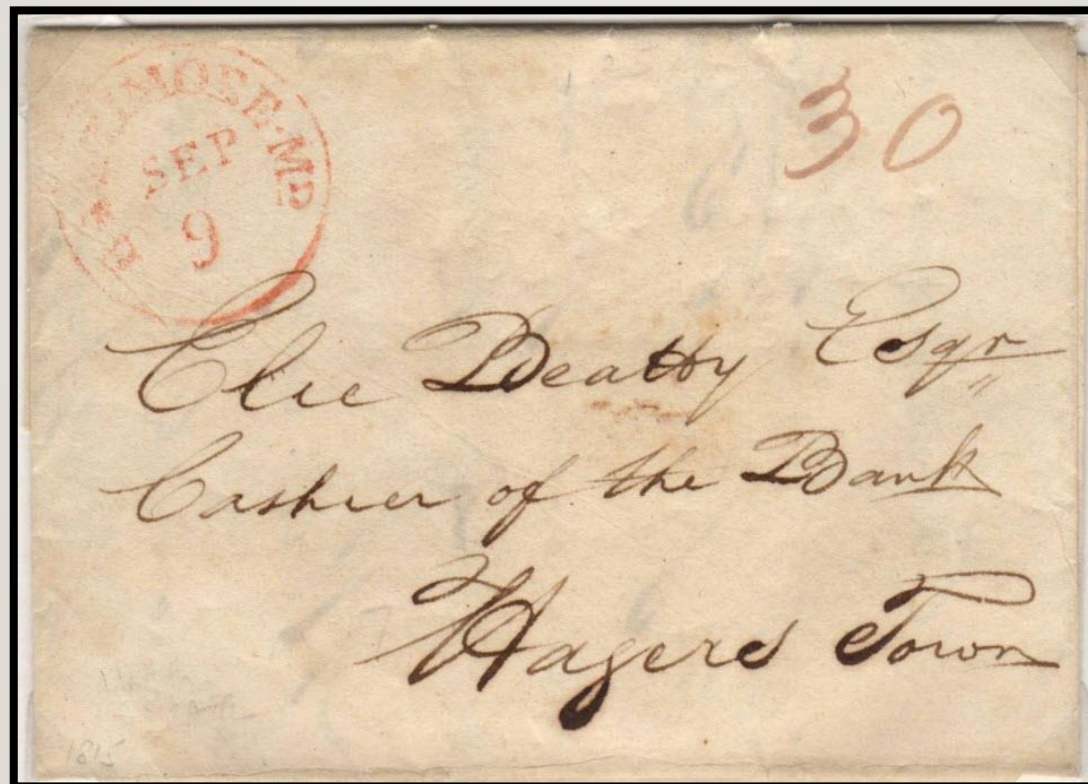 BALTIMORE·MD
SEP
9
30
Elie Beatty Esqr
Cashier of the Bank
Hagers Town
1815